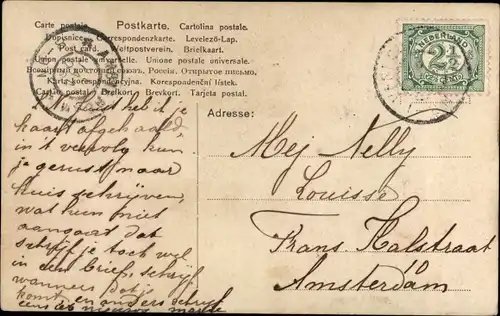 Carte postale. Postkarte. Cartolina postale.
Dopisnice. Correspondenzkarte. Levelező-Lap.
Post card. Weltpostverein. Brielkaart.
Union postale universelle. Unione postale universale.
Всемірный почтовый союзъ. Россія. Открытое письмо.
Karta korespondencyjna. Korespondenční lístek.
Cartão postal. Brefkort. Brevkort. Tarjeta postal.
NEDERLAND
2½
CENT
Adresse:
heb ik je
kaart afgehaald,
in 't vervolg kun
je gerust naar
huis schrijven,
wat hem niet
aangaat dat
schrijf je toch wel
in een brief, schrijf
wanneer dat je
komt, en anders schrijf
eens iets nieuws
Mej Nelly
Louisse
Frans Halstraat
10
Amsterdam